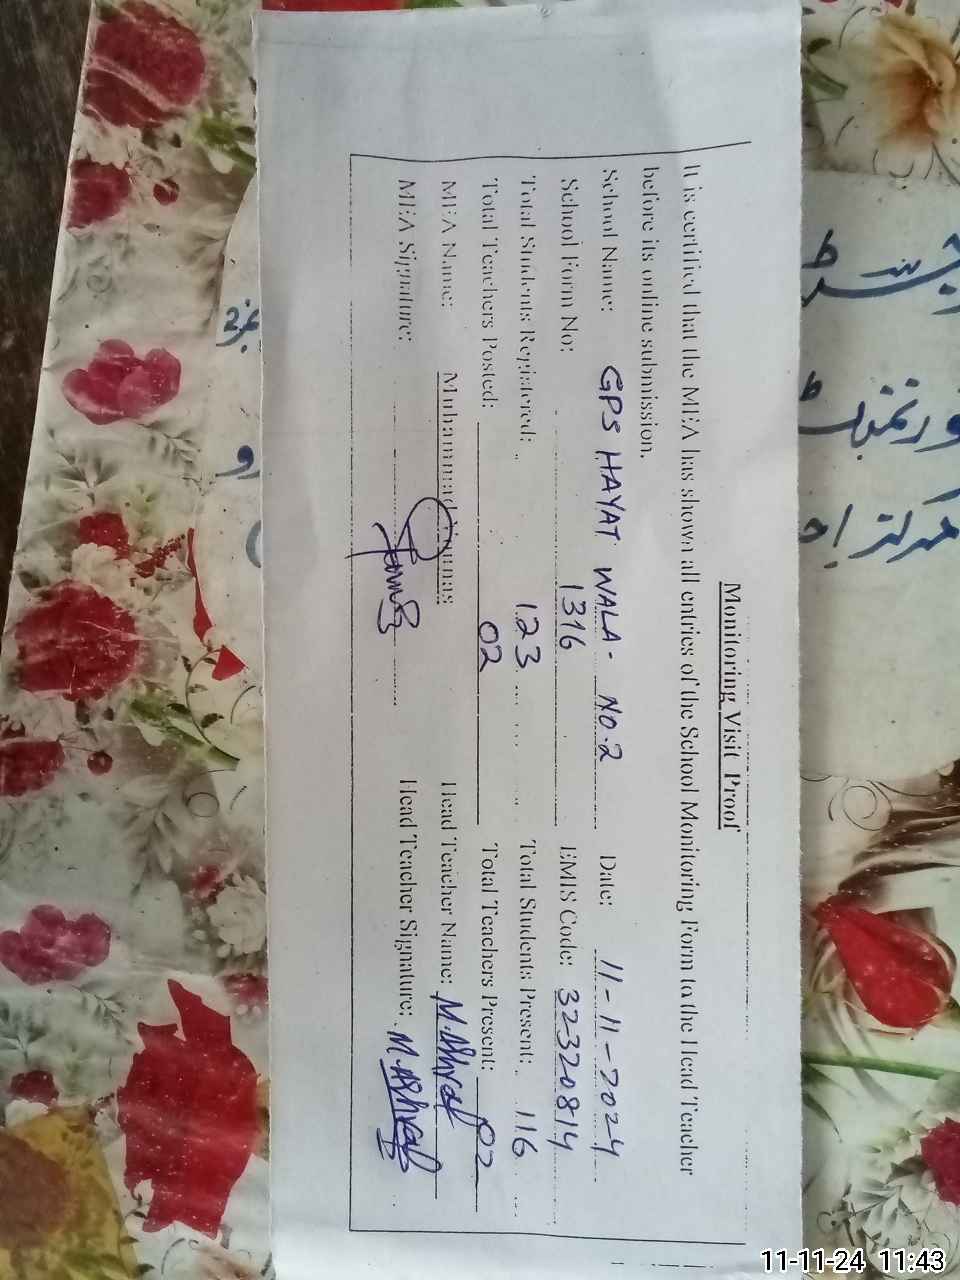 Monitoring Visit Proof
It is certified that the MEA has shown all entries of the School Monitoring Form to the Head Teacher
before its online submission.
School Name: GPS HAYAT WALA. NO.2 Date: 11-11-2024
School Form No: 1316 EMIS Code: 32320814
Total Students Registered: 123 Total Students Present: 116
Total Teachers Posted: 02 Total Teachers Present: 02
MEA Name: Muhammad Head Teacher Name: M. Ashraf
MEA Signature: Head Teacher Signature: M. Ashraf
11-11-24 11:43